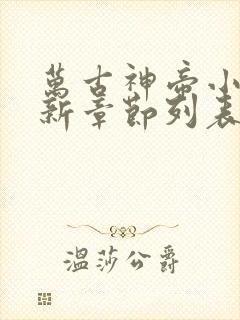 萬古神帝小
新章節列表
溫莎公爵